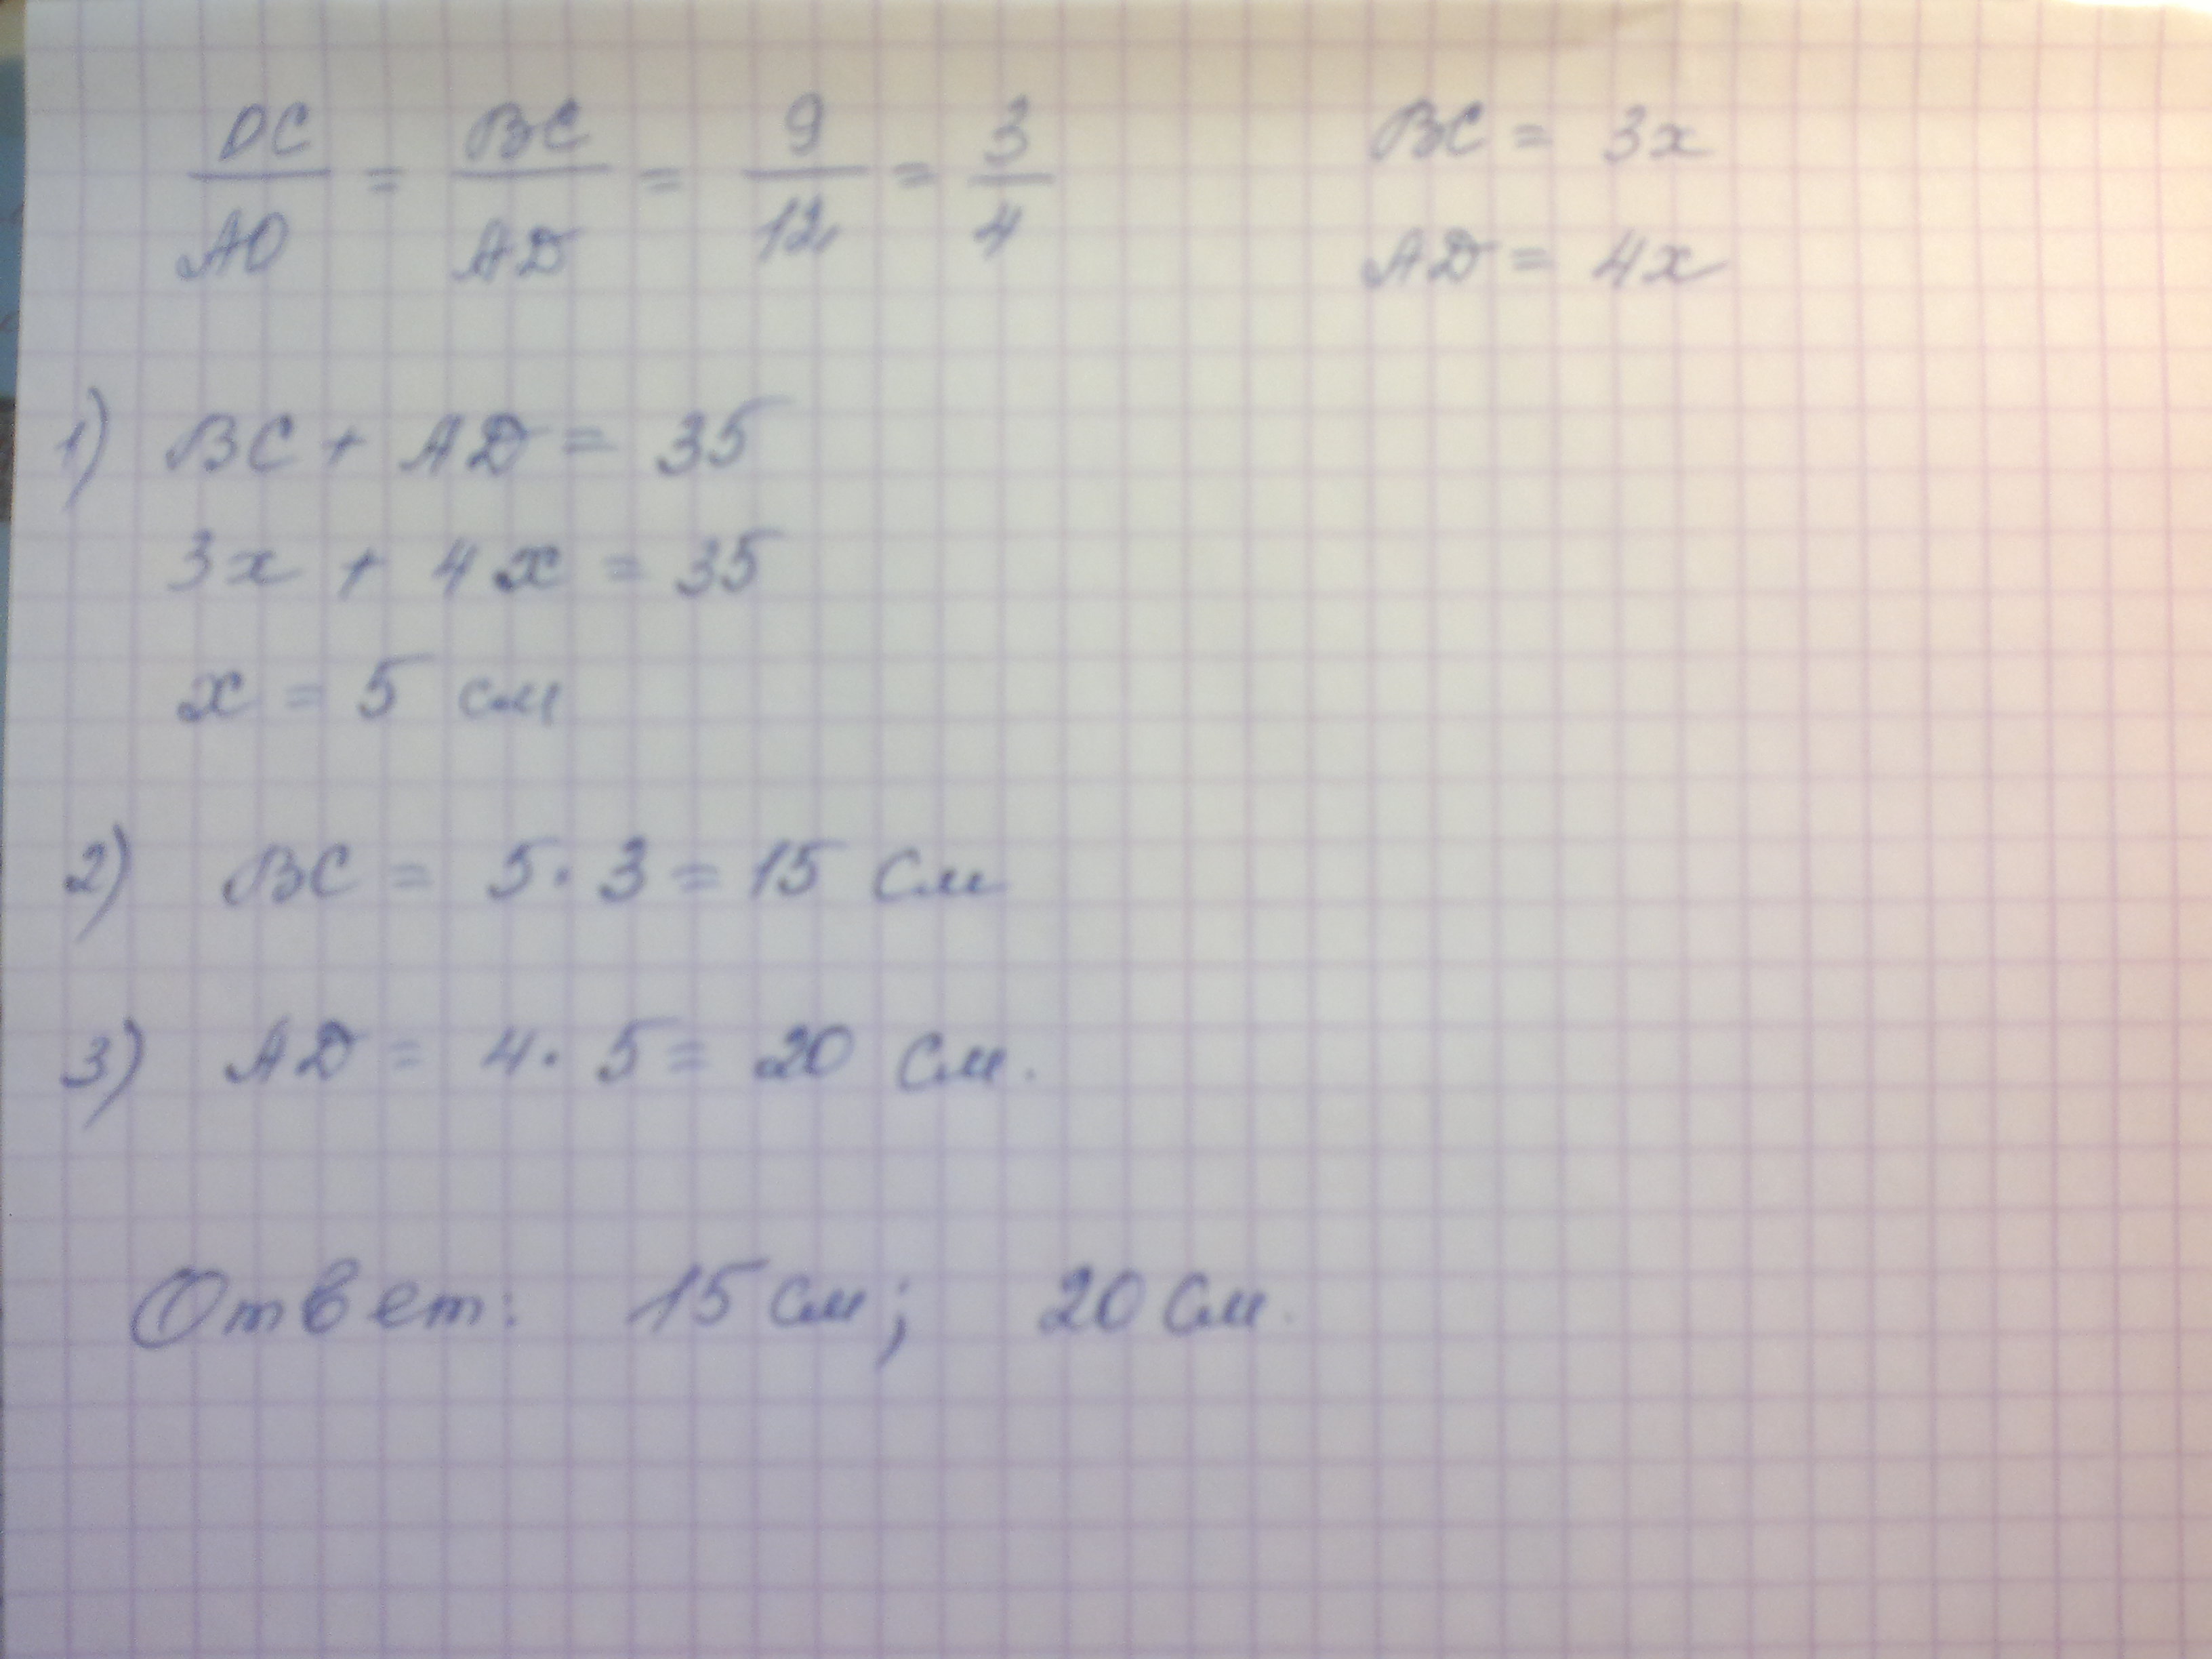 DC/AO = BC/AD = 9/12 = 3/4 BC = 3x
AD = 4x
1) BC + AD = 35
3x + 4x = 35
x = 5 см
2) BC = 5 · 3 = 15 см
3) AD = 4 · 5 = 20 см.
Ответ: 15 см; 20 см.